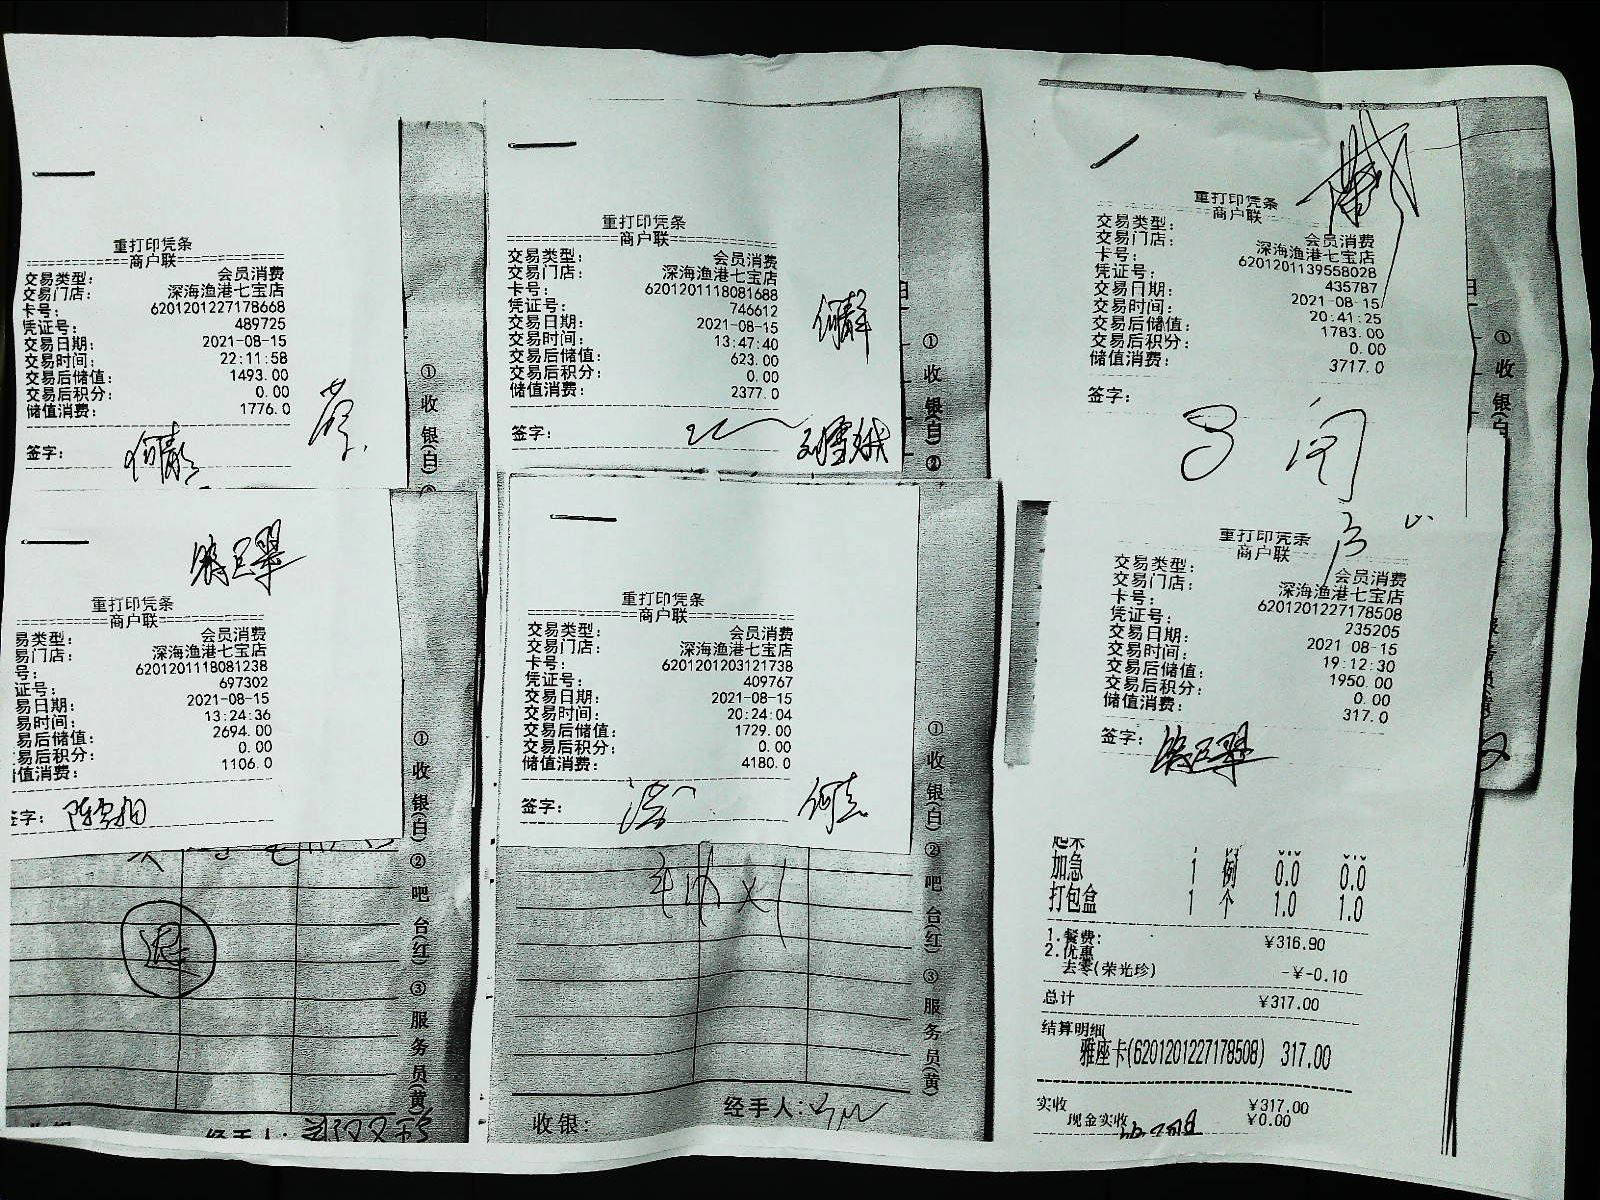 重打印凭条
商户联
交易类型: 会员消费
交易门店: 深海渔港七宝店
卡号: 6201201227178668
凭证号: 489725
交易日期: 2021-08-15
交易时间: 22:11:58
交易后储值: 1493.00
交易后积分: 0.00
储值消费: 1776.0
签字:
重打印凭条
商户联
交易类型: 会员消费
交易门店: 深海渔港七宝店
卡号: 6201201118081688
凭证号: 746612
交易日期: 2021-08-15
交易时间: 13:47:40
交易后储值: 623.00
交易后积分: 0.00
储值消费: 2377.0
签字:
重打印凭条
商户联
交易类型: 会员消费
交易门店: 深海渔港七宝店
卡号: 6201201139558028
凭证号: 435787
交易日期: 2021-08-15
交易时间: 20:41:25
交易后储值: 1783.00
交易后积分: 0.00
储值消费: 3717.0
签字:
①收银(白)
①收银(白)②
①收银(白)
重打印凭条
商户联
易类型: 会员消费
易门店: 深海渔港七宝店
号: 6201201118081238
证号: 697302
易日期: 2021-08-15
易时间: 13:24:36
易后储值: 2694.00
易后积分: 0.00
值消费: 1106.0
签字:
退
①收银(白)②吧台(红)③服务员(黄)
重打印凭条
商户联
交易类型: 会员消费
交易门店: 深海渔港七宝店
卡号: 6201201203121738
凭证号: 409767
交易日期: 2021-08-15
交易时间: 20:24:04
交易后储值: 1729.00
交易后积分: 0.00
储值消费: 4180.0
签字:
收银: 经手人:
①收银(白)②吧台(红)③服务员(黄)
重打印凭条
商户联
交易类型: 会员消费
交易门店: 深海渔港七宝店
卡号: 6201201227178508
凭证号: 235205
交易日期: 2021 08-15
交易时间: 19:12:30
交易后储值: 1950.00
交易后积分: 0.00
储值消费: 317.0
签字:
加急 1 例 0.0 0.0
打包盒 1 个 1.0 1.0
1.餐费: ¥316.90
2.优惠
去零(荣光珍) -¥-0.10
总计 ¥317.00
结算明细
雅座卡(6201201227178508) 317.00
实收 ¥317.00
现金实收 ¥0.00